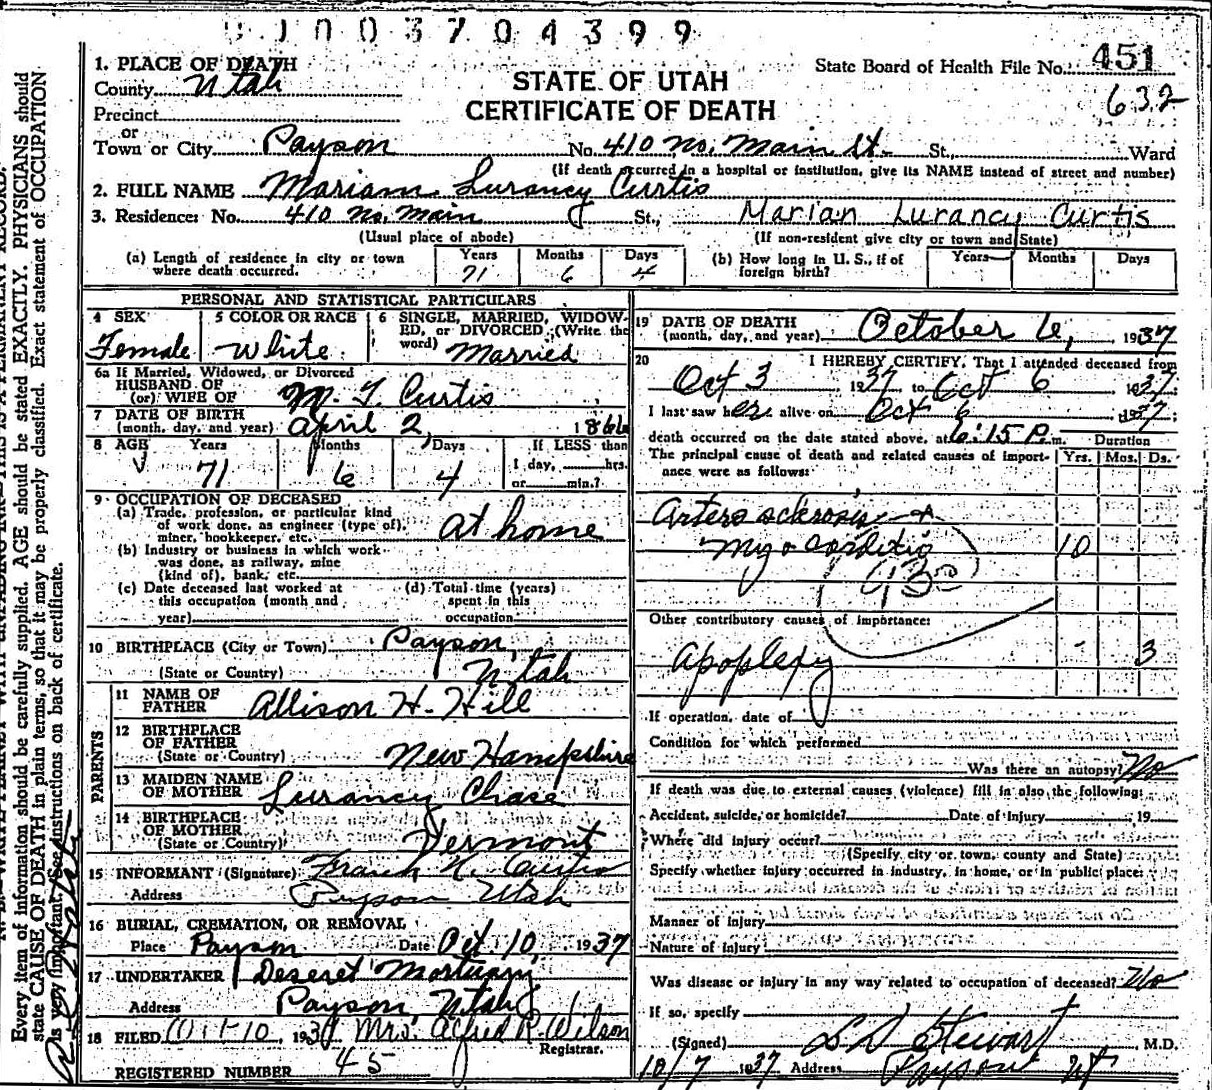 1003704399
1. PLACE OF DEATH
County Utah
State Board of Health File No. 451
632
STATE OF UTAH
CERTIFICATE OF DEATH
Precinct
or
Town or City Payson No. 410 No. Main St. St., Ward
(If death occurred in a hospital or institution, give its NAME instead of street and number)
2. FULL NAME Mariam Lurancy Curtis
3. Residence: No. 410 No. Main St., Marian Lurancy Curtis
(Usual place of abode) (If non-resident give city or town and State)
(a) Length of residence in city or town where death occurred. Years 71 Months 6 Days 4
(b) How long in U. S., if of foreign birth? Years Months Days
PERSONAL AND STATISTICAL PARTICULARS
4 SEX Female
5 COLOR OR RACE White
6 SINGLE, MARRIED, WIDOWED, or DIVORCED (Write the word) Married
6a If Married, Widowed, or Divorced
HUSBAND OF
(or) WIFE OF M. T. Curtis
7 DATE OF BIRTH
(month, day, and year) April 2, 1866
8 AGE Years 71 Months 6 Days 4 If LESS than
1 day, hrs.
or min.?
9 OCCUPATION OF DECEASED
(a) Trade, profession, or particular kind
of work done, as engineer (type of),
miner, bookkeeper, etc. at home
(b) Industry or business in which work
was done, as railway, mine
(kind of), bank, etc.
(c) Date deceased last worked at
this occupation (month and
year)
(d) Total time (years)
spent in this
occupation
10 BIRTHPLACE (City or Town) Payson,
(State or Country) Utah
PARENTS
11 NAME OF
FATHER Allison H. Hill
12 BIRTHPLACE
OF FATHER
(State or Country) New Hampshire
13 MAIDEN NAME
OF MOTHER Lurancy Chase
14 BIRTHPLACE
OF MOTHER
(State or Country) Vermont
15 INFORMANT (Signature) Frank H. Curtis
Address Payson Utah
16 BURIAL, CREMATION, OR REMOVAL
Place Payson Date Oct. 10, 1937
17 UNDERTAKER Deseret Mortuary
Address Payson, Utah
18 FILED Oct-10, 1937 Mrs. Alfred R. Wilson
Registrar.
REGISTERED NUMBER 45
19 DATE OF DEATH
(month, day, and year) October 6, 1937
20 I HEREBY CERTIFY, That I attended deceased from
Oct 3 1937 to Oct 6 1937
I last saw her alive on Oct 6 1937
death occurred on the date stated above, at 6:15 P. m. Duration
The principal cause of death and related causes of importance were as follows: Yrs. Mos. Ds.
Arterosclerosis
myocarditis 10
930
Other contributory causes of importance:
apoplexy - 3
If operation, date of
Condition for which performed
Was there an autopsy? No
If death was due to external causes (violence) fill in also the following:
Accident, suicide, or homicide? Date of Injury 19
Where did injury occur?
(Specify city or town, county and State)
Specify whether injury occurred in industry, in home, or in public place:
Manner of injury
Nature of injury
Was disease or injury in any way related to occupation of deceased? No
If so, specify
(Signed) L D Stewart, M.D.
10/7 1937 Address Payson Ut
Every item of information should be carefully supplied. AGE should be stated EXACTLY. PHYSICIANS should
state CAUSE OF DEATH in plain terms, so that it may be properly classified. Exact statement of OCCUPATION
is very important. See instructions on back of certificate.